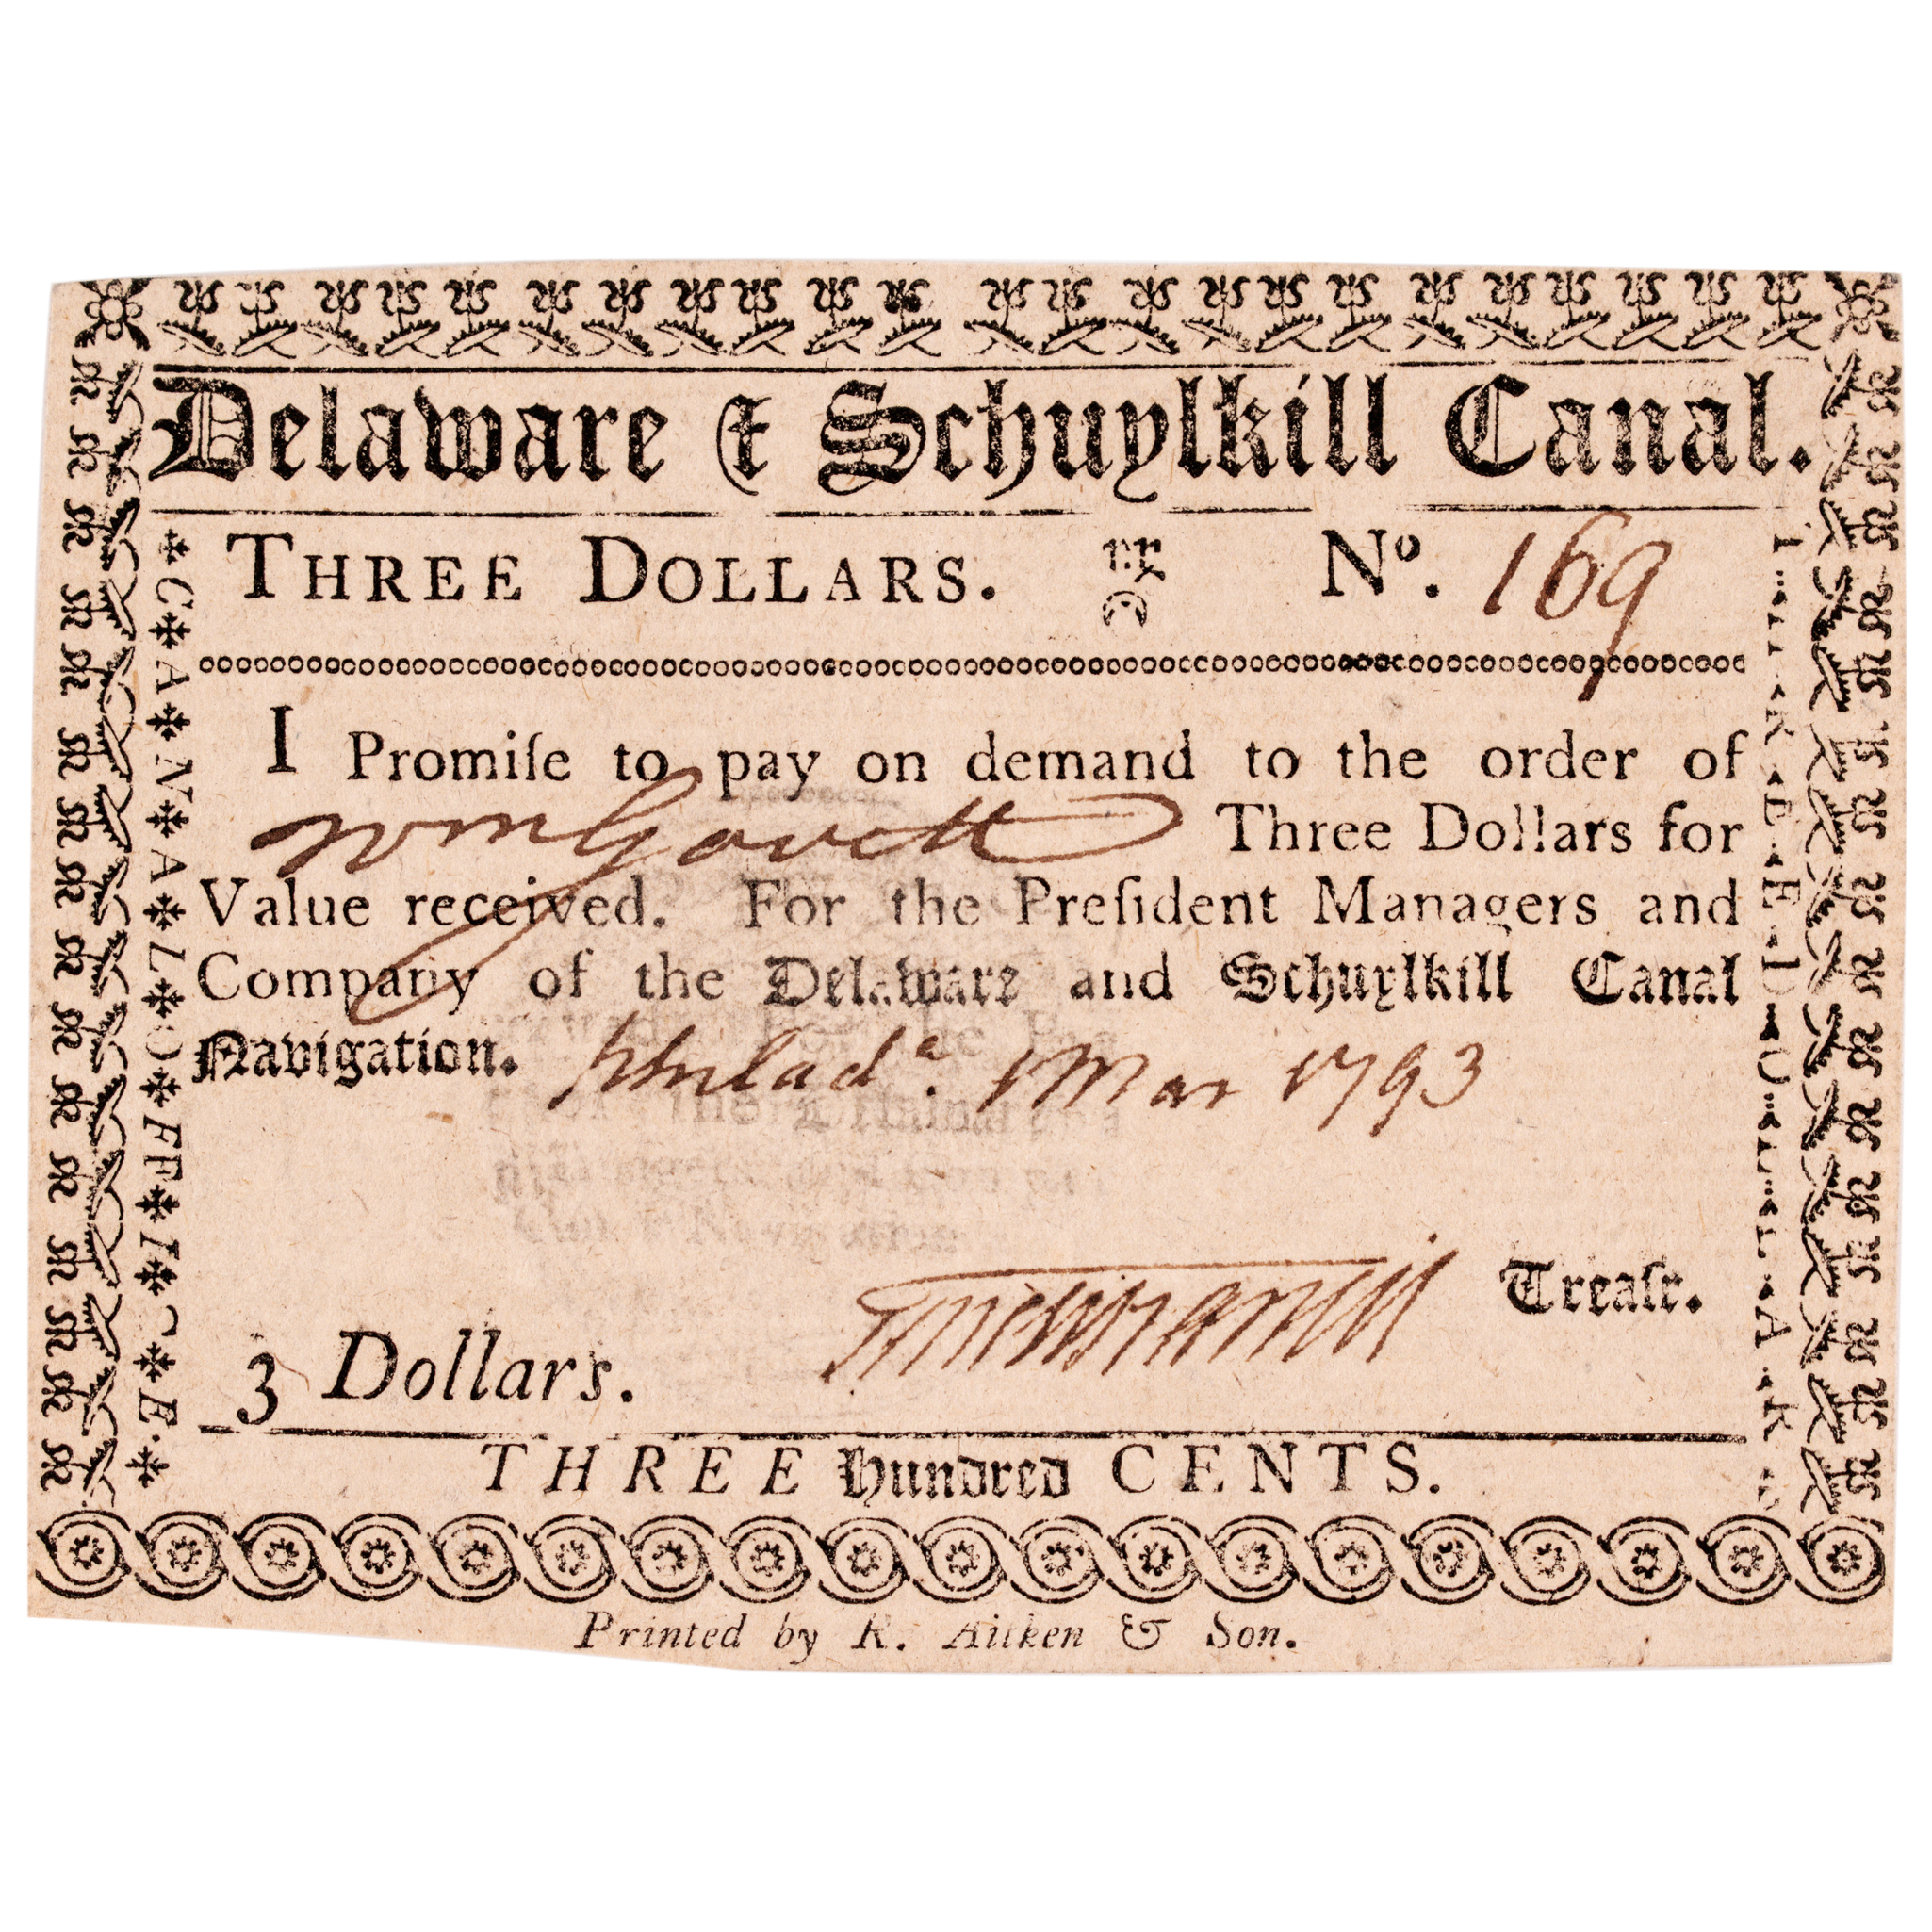 Delaware & Schuylkill Canal.
THREE DOLLARS. No. 169
I Promiſe to pay on demand to the order of
Wm Govett Three Dollars for
Value received. For the Preſident Managers and
Company of the Delaware and Schuylkill Canal
Navigation. Philada. 1 Mar 1793
Treaſr.
3 Dollars.
THREE Hundred CENTS.
Printed by R. Aitken & Son.
CANAL OFFICE.
THREE DOLLARS